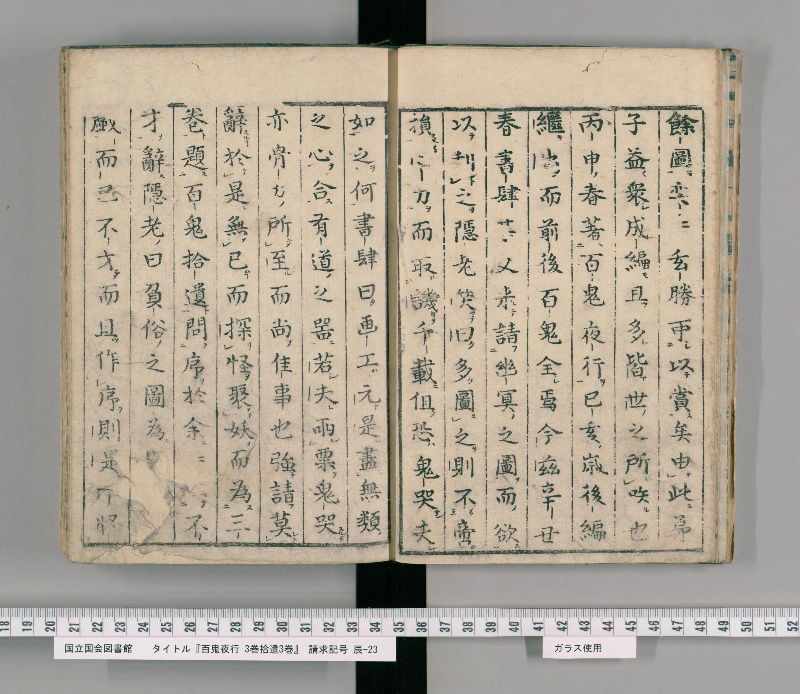 餘圖 玄勝更以賞矣由此弟
子益衆成編且多皆世之所 也
丙申春著百鬼夜行已亥歳後編
繼出而前後百鬼全焉今茲辛丑
春書肆 又来請幽冥之圖而欲
以刊之隱老笑曰多圖之則不啻
損 力而取譏千載但恐鬼哭夫
如之何書肆曰画工元是盡無類
之心合有道之器若夫雨粟鬼哭
亦骨 所至而尚佳事也強請莫
辭於是無已而探怪聚妖而為三
卷題百鬼拾遺問序於余 不
才辭隱老曰貧俗之圖為
戲而已不才而且作序則是
18 19 20 21 22 23 24 25 26 27 28 29 30 31 32 33 34 35 36 37 38 39 40 41 42 43 44 45 46 47 48 49 50 51 52
国立国会図書館 タイトル『百鬼夜行 3巻拾遺3巻』 請求記号 辰-23
ガラス使用